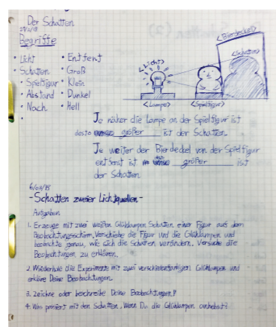 Der Schatten
Begriffte
• Licht • Entfernt
• Schatten • Groß
• Spielfigur • Klein
• Abstand • Dunkel
• Nach • Hell
<Bierdeckel>
<Schatten>
<Licht>
<Lampe> <Spielfigur>
Je näher die Lampe an der Spielfigur ist
desto größer ist der Schatten.
Je weiter der Bierdeckel von der Spielfigur
entfernt ist größer ist
der Schatten.
-Schatten zweier Lichtquellen-
Aufgaben
1. Erzeuge mit zwei weißen Glühlampen Schatten einer Figur auf dem
Beobachtungsschirm. Verschiebe die Figur und die Glühlampen und
beobachte genau, wie sich die Schatten verändern. Versuche die
Beobachtungen zu erklären.
2. Wiederhole die Experimente mit zwei verschiedenfarbigen Glühlampen und
erkläre Deine Beobachtungen.
3. Zeichne oder beschreibe Deine Beobachtungen!
4. Was passiert mit den Schatten, wenn Du die Glühlampen